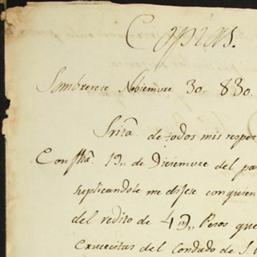 Copias.
Sombrerete Noviembre 30,, 830.
Sriã. de todos mis respe
Constã. 19,, de Diciembre del pa
suplicandole me dijese con quien
del redito de 4 pesos que
del Condado de S.